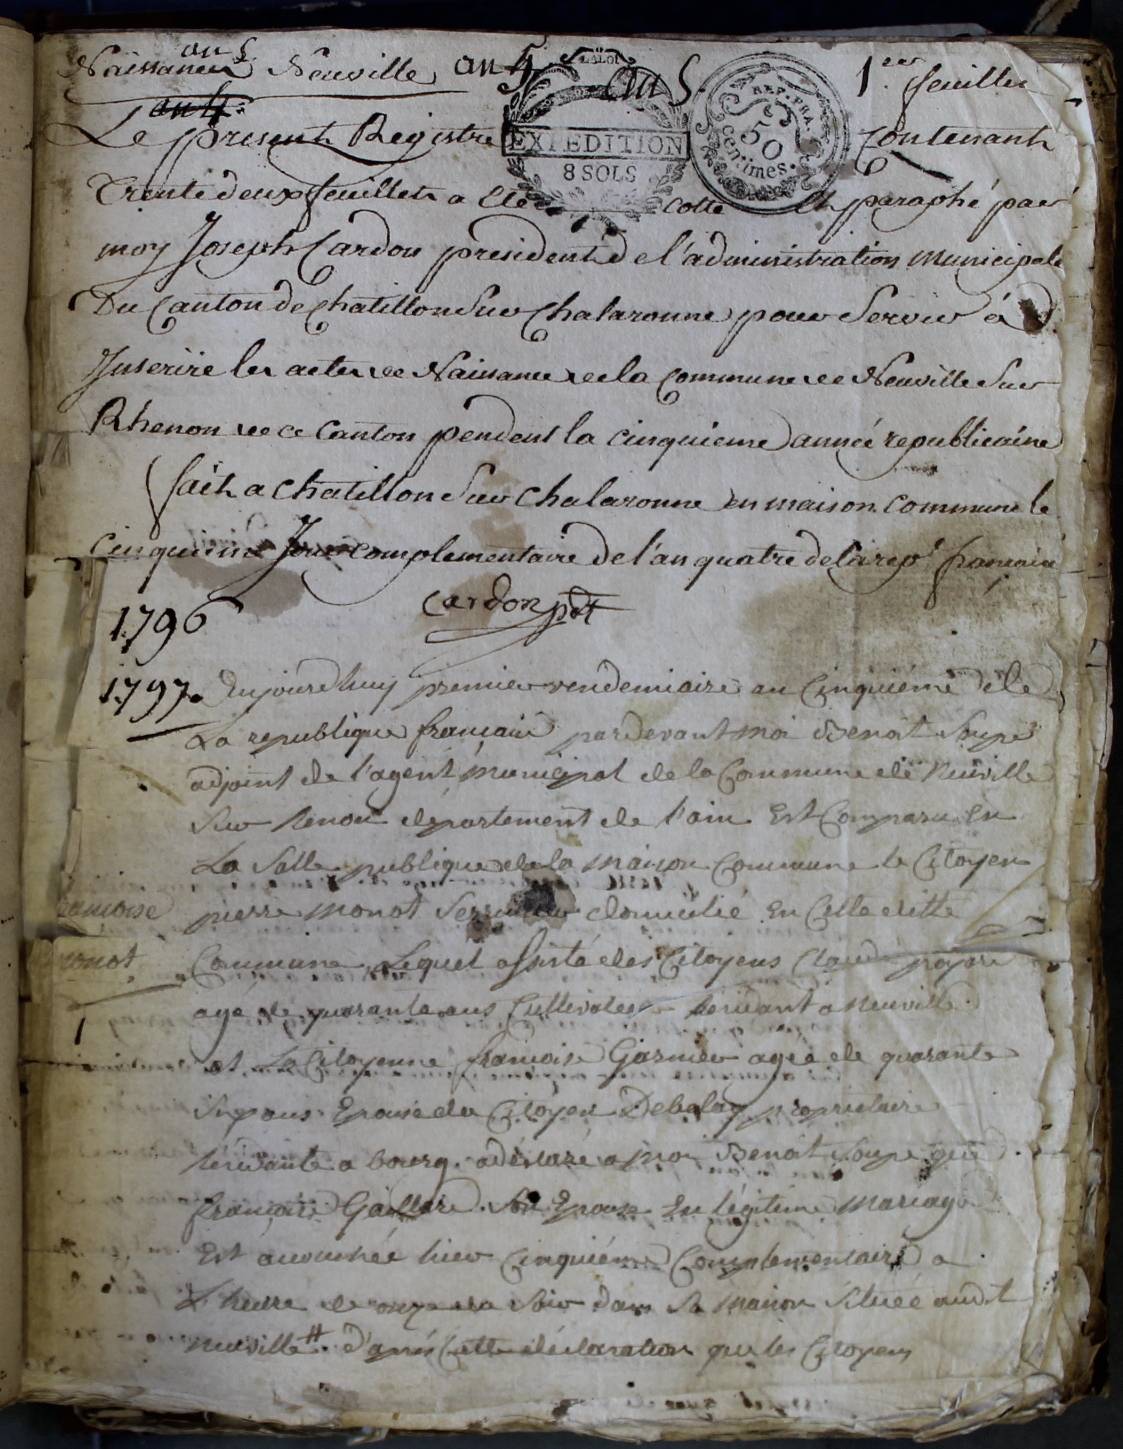 an 5
Naissances Neuville an 4 an 5 1er feuillet
an 4
LA LOI
EXPEDITION
8 SOLS
REP. FRA.
50
centimes.
Le present Registre contenant
Trente deux feuillets a été cotté et paraphé par
moy Joseph Cardon president de l'administration municipale
Du Canton de chatillon Sur Chalaronne pour Servir á
Inscrire les actes de Naissance de la Commune de Neuville Sur
Rhenon de ce Canton pendent la cinquieme année republicaine
fait a Chatillon Sur Chalaronne en maison Commune le
cinquieme Jour complementaire de l'an quatre de la rep. francaise
Cardon pdt
1796
1797. aujourdhuy premier vendemiaire an Cinquième de le
La republique francaise pardevant moi Benoit Soupe
adjoint de l'agent municipal de la Commune de neuville
Sur Renon departement de l'ain Est Comparu En
La Salle publique de la maison Commune le Citoyen
pierre monot domicilié En Celle ditte
Commune, Lequel assisté des Citoyens Claude
age de quarante ans Cultivateur a neuville
et La Citoyenne francoise Garnier agée de quarante
Six ans Epouse du Citoyen Debelay propriétaire
a bourg. a déclaré a moi Benoit Soupe que
francoise Gaillard Son Epouse En légitime mariage
Est accouchée hier Cinquiéme Complementaire a
L'heure de onze du Soir dans Sa maison Située audit
neuville # d'aprés Cette déclaration que les Citoyens
francoise
monot
1